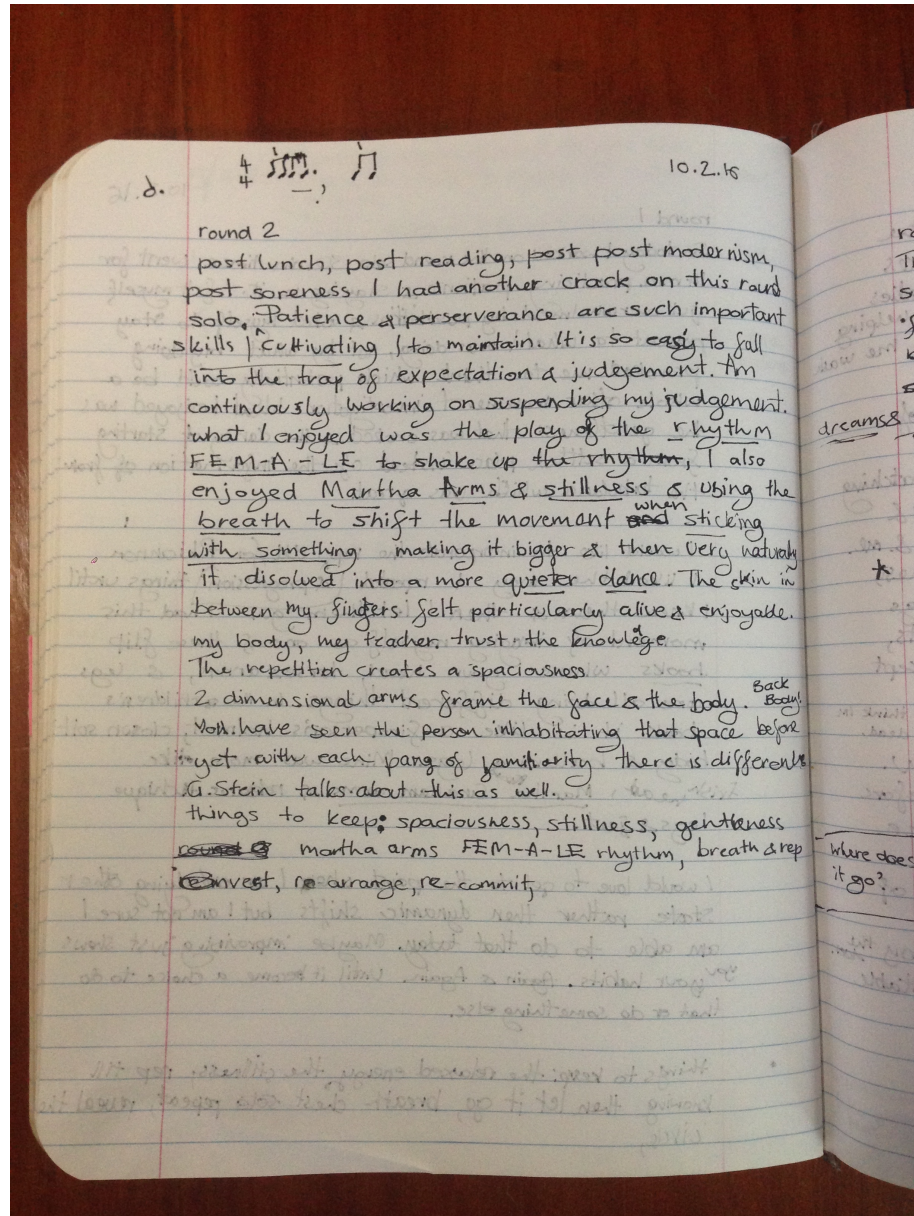 d. 4/4
10.2.16
round 2
post lunch, post reading, post post modernism,
post soreness I had another crack on this round
solo. Patience & perserverance are such important
skills | cultivating | to maintain. It is so easy to fall
into the trap of expectation & judgement. Am
continuously working on suspending my judgement.
what I enjoyed was the play of the rhythm
FEM-A-LE to shake up the rhythm, I also
enjoyed Martha Arms & stillness & using the
breath to shift the movement and when sticking
with something making it bigger & then very naturaly
it disolved into a more quieter dance. The skin in
between my fingers felt particularly alive & enjoyable.
my body, my teacher. trust the knowledge
The repetition creates a spaciousness
2 dimensional arms frame the face & the body. Back Body!
You have seen the person inhabitating that space before
yet with each pang of familiarity there is
G. Stein talks about this as well.
things to keep: spaciousness, stillness, gentleness
martha arms FEM-A-LE rhythm, breath & rep
reinvest, re arrange, re-commit,
dreams &
*
where does
it go?